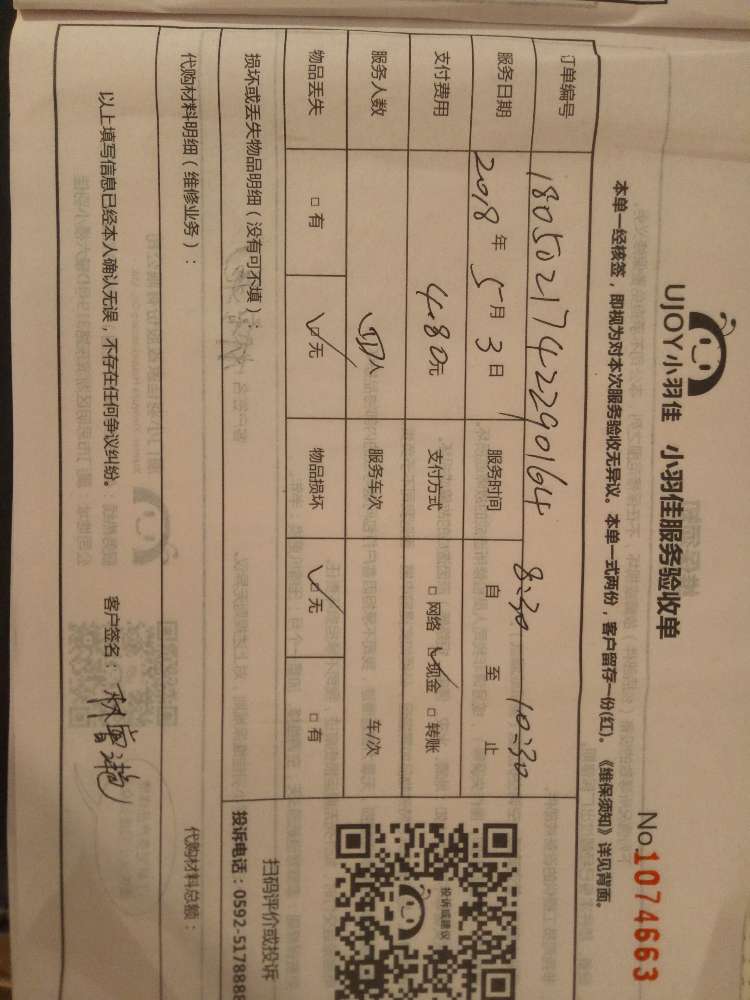 UJOY小羽佳 小羽佳服务验收单
No.1074663
本单一经核签，即视为对本次服务验收无异议。本单一式两份，客户留存一份(红)。《维保须知》详见背面。
订单编号 1805021742290164
服务日期 2018年5月3日 服务时间 8:30 自 至 10:30 止
支付费用 480元 支付方式 □网络 ☑现金 □转账
服务人数 四人 服务车次 车/次
物品丢失 □有 ☑无 物品损坏 ☑无 □有
损坏或丢失物品明细（没有可不填）：
投诉或建议
扫码评价或投诉
投诉电话：0592-5178888
代购材料明细（维修业务）： 代购材料总额：
以上填写信息已经本人确认无误，不存在任何争议纠纷。 客户签名：